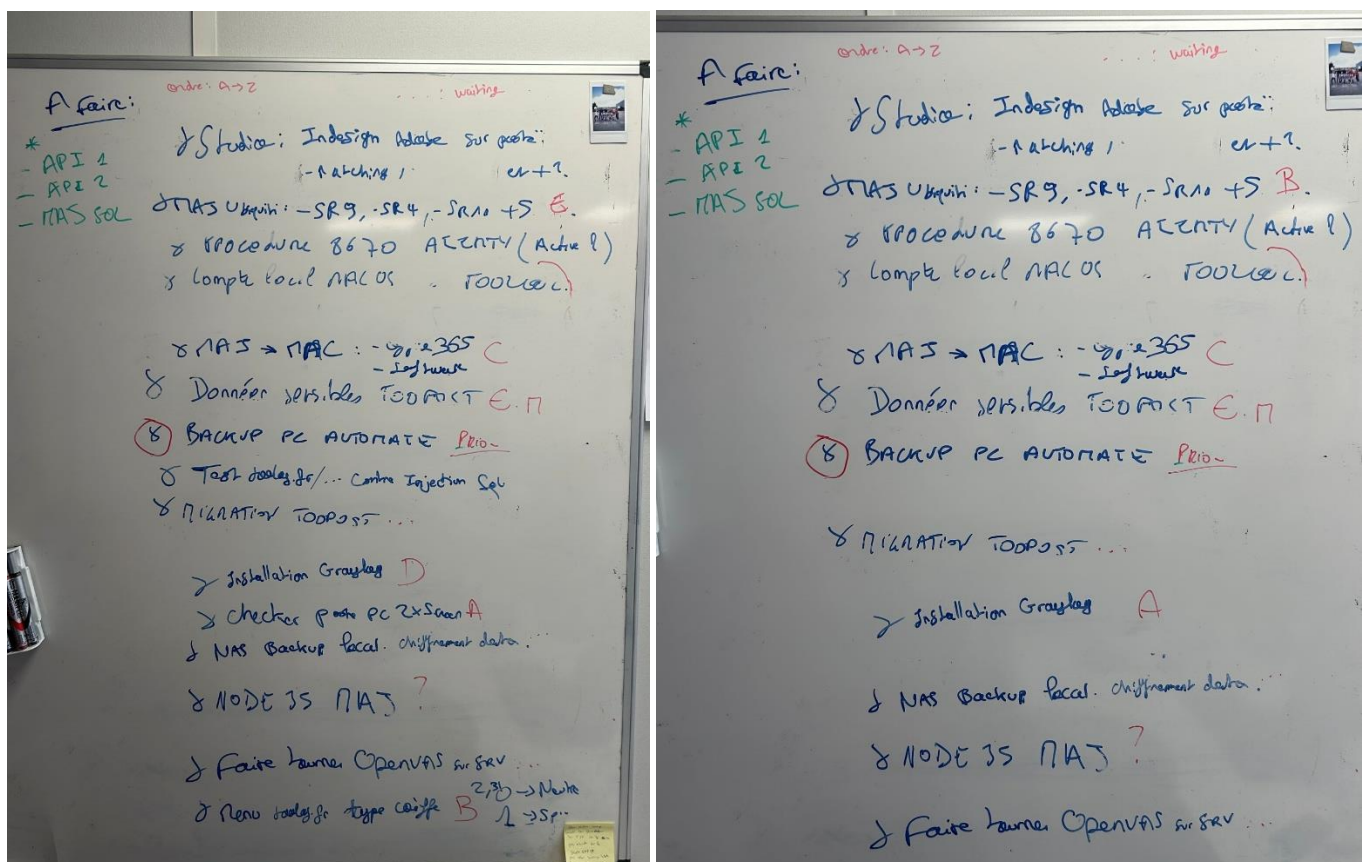 ordre: A→Z
.... : waiting
A faire:
*
- API 1
- API 2
- MAS SOL
Studio: Indesign Adobe sur poste
- Patching
en + ?
MAJ Ubiquiti: - SR9, - SR4, - SR10 +5 E.
Procedure 8670 (Active
Compte local MAC OS
MAJ → MAC : 365 C
- Software
Données sensibles E.M
BACKUP PC AUTOMATE Prio-
Test contre Injection Sql
MIGRATION TOOPOST ...
Installation Graylog D
Checker poste PC 2xScreen A
NAS Backup local. chiffrement data...
NODE JS MAJ ?
Faire tourner OpenVAS sur SRV ...
Menu type B 2,3D → Neutre
1 →
ordre: A→Z
.... : waiting
A faire:
*
- API 1
- API 2
- MAS SOL
Studio: Indesign Adobe sur poste
- Patching
en + ?
MAJ Ubiquiti: - SR9, - SR4, - SR10 +5 B.
Procedure 8670 (Active
Compte local MAC OS
MAJ → MAC : 365 C
- Software
Données sensibles E.M
BACKUP PC AUTOMATE Prio-
MIGRATION TOOPOST ...
Installation Graylog A
NAS Backup local. chiffrement data...
NODE JS MAJ ?
Faire tourner OpenVAS sur SRV ...